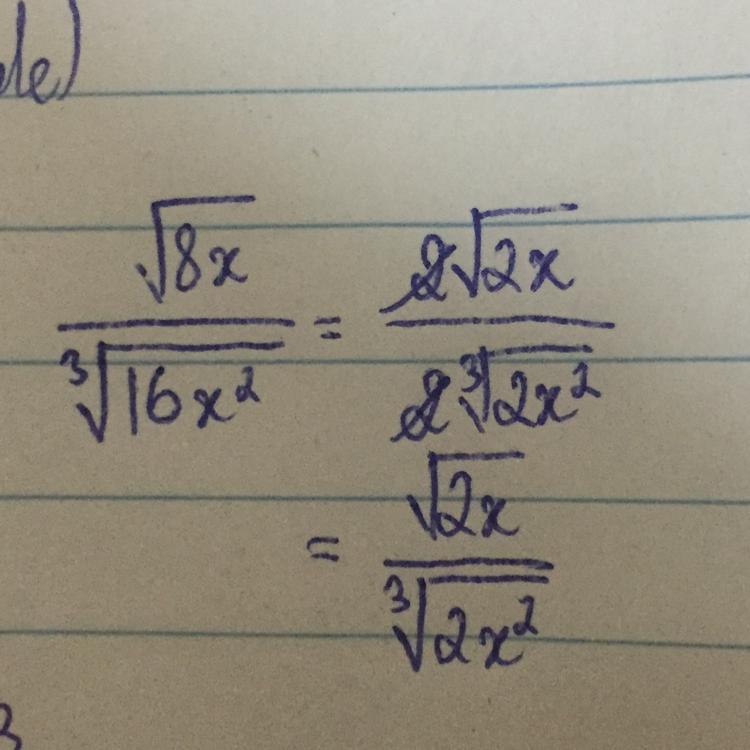 de)
√8x / ∛16x² = 2√2x / 2∛2x²
= √2x / ∛2x²
3